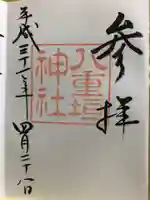 参拝
八重垣神社
平成三十一年四月二十八日